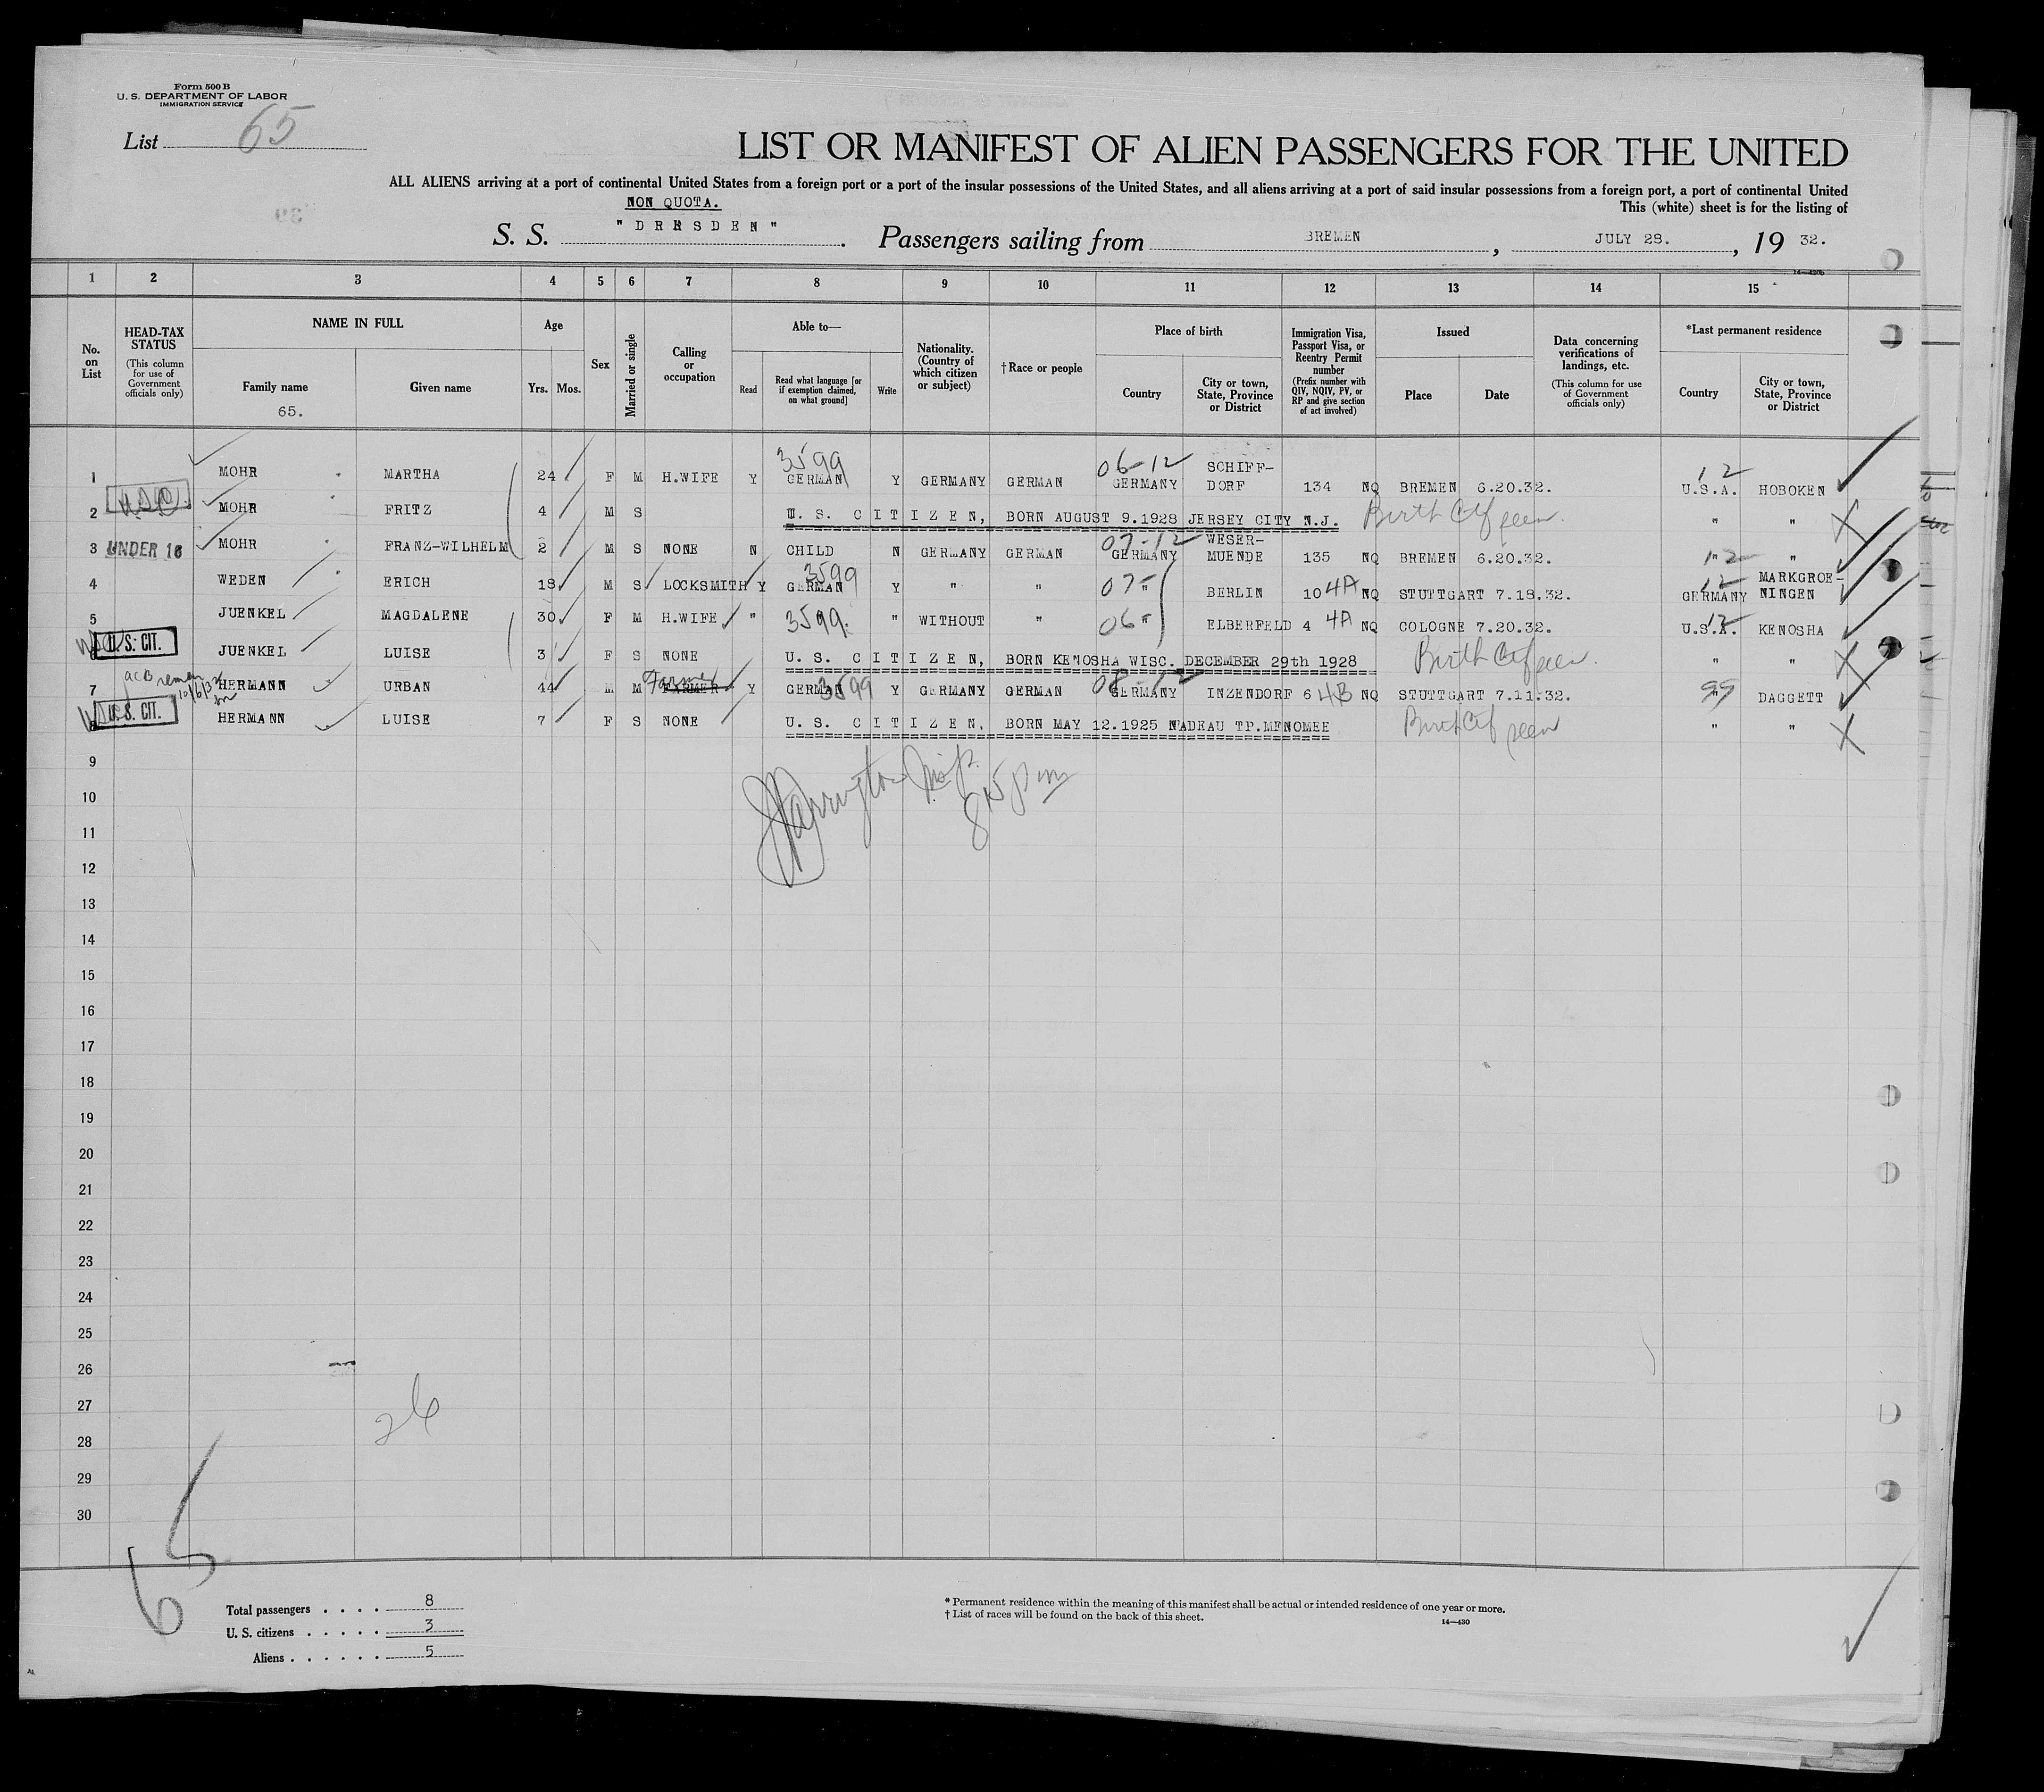 Form 500 B
U. S. DEPARTMENT OF LABOR
IMMIGRATION SERVICE
List 65
LIST OR MANIFEST OF ALIEN PASSENGERS FOR THE UNITED
ALL ALIENS arriving at a port of continental United States from a foreign port or a port of the insular possessions of the United States, and all aliens arriving at a port of said insular possessions from a foreign port, a port of continental United
NON QUOTA. This (white) sheet is for the listing of
S. S. "DRESDEN". Passengers sailing from BREMEN, JULY 28., 19 32.
1 2 3 4 5 6 7 8 9 10 11 12 13 14 15
No. on List
HEAD-TAX STATUS (This column for use of Government officials only)
NAME IN FULL
Family name Given name
65.
Age
Yrs. Mos.
Sex
Married or single
Calling or occupation
Able to—
Read Read what language [or if exemption claimed, on what ground] Write
Nationality. (Country of which citizen or subject)
†Race or people
Place of birth
Country City or town, State, Province or District
Immigration Visa, Passport Visa, or Reentry Permit number (Prefix number with QIV, NQIV, PV, or RP and give section of act involved)
Issued
Place Date
Data concerning verifications of landings, etc. (This column for use of Government officials only)
*Last permanent residence
Country City or town, State, Province or District
1 MOHR MARTHA 24 F M H.WIFE Y GERMAN 3599 Y GERMANY GERMAN 06-12 GERMANY SCHIFF-DORF 134 NQ BREMEN 6.20.32. 12 U.S.A. HOBOKEN
2 MOHR FRITZ 4 M S U. S. CITIZEN, BORN AUGUST 9.1928 JERSEY CITY N.J. Birth Ctf seen " "
3 UNDER 16 MOHR FRANZ-WILHELM 2 M S NONE N CHILD N GERMANY GERMAN 07-12 GERMANY WESER-MUENDE 135 NQ BREMEN 6.20.32. 12 " "
4 WEDEN ERICH 18 M S LOCKSMITH Y GERMAN 3599 Y " " 07 " BERLIN 10 4A NQ STUTTGART 7.18.32. 12 GERMANY MARKGROE-NINGEN
5 JUENKEL MAGDALENE 30 F M H.WIFE " 3599 " WITHOUT " 06 " ELBERFELD 4 4A NQ COLOGNE 7.20.32. 12 U.S.A. KENOSHA
U.S. CIT. JUENKEL LUISE 3 F S NONE U. S. CITIZEN, BORN KENOSHA WISC. DECEMBER 29th 1928 Birth Ctf seen " "
7 HERMANN URBAN 44 M M FARMER Farmer Y GERMAN 3599 Y GERMANY GERMAN 08-12 GERMANY INZENDORF 6 4B NQ STUTTGART 7.11.32. 99 " DAGGETT
8 U.S. CIT. HERMANN LUISE 7 F S NONE U. S. CITIZEN, BORN MAY 12.1925 NADEAU TP.MENOMEE Birth Ctf seen " "
9
10 815 pm
11
12
13
14
15
16
17
18
19
20
21
22
23
24
25
26
27 26
28
29
30
65
Total passengers . . . . 8
U. S. citizens . . . . . 3
Aliens . . . . . . 5
* Permanent residence within the meaning of this manifest shall be actual or intended residence of one year or more.
† List of races will be found on the back of this sheet.
14—430